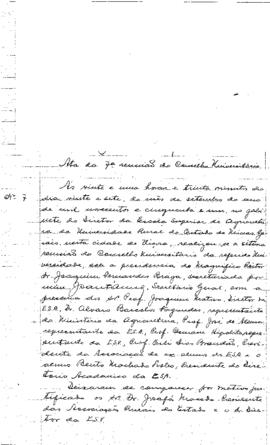 Ata da 7ª reunião do Conselho Universitário.
Às vinte e uma horas e trinta minutos do
dia vinte e sete, do mês de setembro do ano
Nº 7
de mil novecentos e cinquenta e um, no gabi-
nete do Diretor da Escola Superior de Agricultu-
ra, da Universidade Rural do Estado de Minas Ge-
rais, nesta cidade de Viçosa, realizou-se a sétima
reunião do Conselho Universitário da referida Uni-
versidade, sob a presidência do Magnífico Reitor
Dr. Joaquim Fernandes Braga, secretariada por
mim, Secretário Geral, com a
presença dos srs. Prof. Joaquim Matoso, Diretor da
E.S.A., Dr. Alvaro Barcelos Fagundes, representante
do Ministério da Agricultura, Prof. José de
representante da E.S.V., Prof. repre-
sentante da E.S.A., Prof. Brandão, Presi-
dente da Associação de ex-alunos da E.S.A. e o
aluno Bento Machado Prates, Presidente do Dire-
tório Acadêmico da E.S.A.
Deixaram de comparecer por motivo jus-
tificado os srs. Dr. Josafá Macedo, Presidente
das Associações Rurais do Estado e o dr. Dire-
tor da E.S.V.